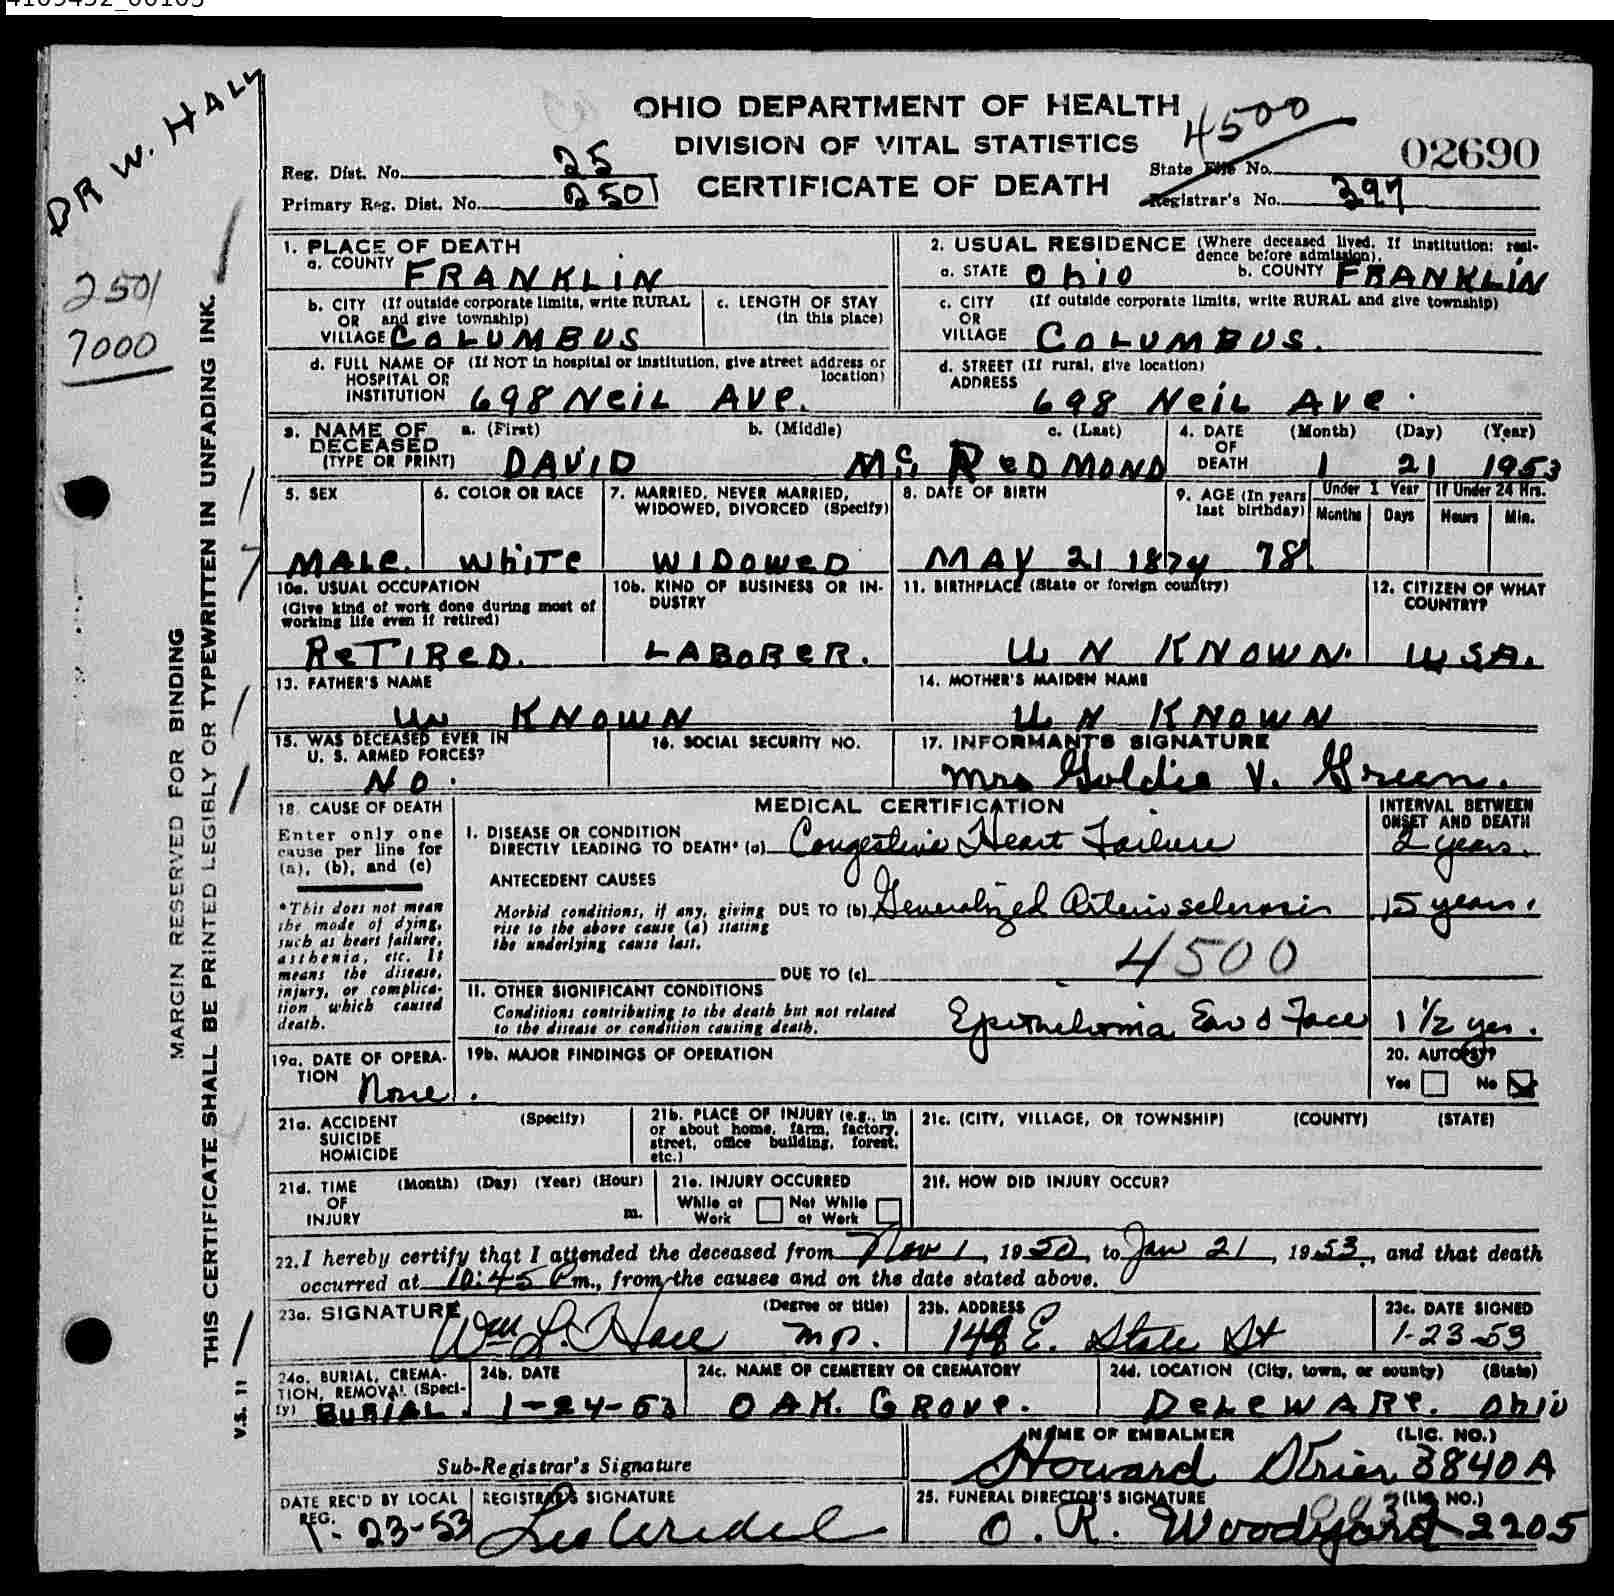 DR W. HALL
2501
7000
MARGIN RESERVED FOR BINDING
THIS CERTIFICATE SHALL BE PRINTED LEGIBLY OR TYPEWRITTEN IN UNFADING INK.
V.S. 11
OHIO DEPARTMENT OF HEALTH
DIVISION OF VITAL STATISTICS
CERTIFICATE OF DEATH
4500
02690
Reg. Dist. No. 25
Primary Reg. Dist. No. 2501
State File No.
Registrar's No. 397
1. PLACE OF DEATH
a. COUNTY FRANKLIN
b. CITY (If outside corporate limits, write RURAL
OR and give township)
VILLAGE COLUMBUS
c. LENGTH OF STAY
(in this place)
d. FULL NAME OF (If NOT in hospital or institution, give street address or
HOSPITAL OR location)
INSTITUTION 698 Neil Ave.
2. USUAL RESIDENCE (Where deceased lived. If institution: resi-
dence before admission).
a. STATE Ohio b. COUNTY FRANKLIN
c. CITY (If outside corporate limits, write RURAL and give township)
OR
VILLAGE COLUMBUS.
d. STREET (If rural, give location)
ADDRESS
698 Neil Ave.
3. NAME OF a. (First) b. (Middle) c. (Last)
DECEASED
(TYPE OR PRINT) DAVID Mc REDMOND
4. DATE (Month) (Day) (Year)
OF
DEATH 1 21 1953
5. SEX
MALE.
6. COLOR OR RACE
White
7. MARRIED, NEVER MARRIED,
WIDOWED, DIVORCED (Specify)
WIDOWED
8. DATE OF BIRTH
MAY 21 1874
9. AGE (In years
last birthday)
78
Under 1 Year
Months Days
If Under 24 Hrs.
Hours Min.
10a. USUAL OCCUPATION
(Give kind of work done during most of
working life even if retired)
RETIRED.
10b. KIND OF BUSINESS OR IN-
DUSTRY
LABORER.
11. BIRTHPLACE (State or foreign country)
UN KNOWN.
12. CITIZEN OF WHAT
COUNTRY?
USA.
13. FATHER'S NAME
UN KNOWN
14. MOTHER'S MAIDEN NAME
UN KNOWN
15. WAS DECEASED EVER IN
U. S. ARMED FORCES?
NO.
16. SOCIAL SECURITY NO.
17. INFORMANT'S SIGNATURE
Mrs Goldie V. Green.
18. CAUSE OF DEATH
Enter only one
cause per line for
(a), (b), and (c)
*This does not mean
the mode of dying,
such as heart failure,
asthenia, etc. It
means the disease,
injury, or complica-
tion which caused
death.
MEDICAL CERTIFICATION
INTERVAL BETWEEN
ONSET AND DEATH
I. DISEASE OR CONDITION
DIRECTLY LEADING TO DEATH* (a) Congestive Heart Failure 2 years.
ANTECEDENT CAUSES
Morbid conditions, if any, giving DUE TO (b) Generalized Arteriosclerosis 15 years.
rise to the above cause (a) stating
the underlying cause last.
4500
DUE TO (c)
II. OTHER SIGNIFICANT CONDITIONS
Conditions contributing to the death but not related
to the disease or condition causing death.
Epithelioma Ear & Face 1 1/2 yrs.
19a. DATE OF OPERA-
TION None.
19b. MAJOR FINDINGS OF OPERATION
20. AUTOPSY?
Yes No
21a. ACCIDENT (Specify)
SUICIDE
HOMICIDE
21b. PLACE OF INJURY (e.g., in
or about home, farm, factory,
street, office building, forest,
etc.)
21c. (CITY, VILLAGE, OR TOWNSHIP) (COUNTY) (STATE)
21d. TIME (Month) (Day) (Year) (Hour)
OF
INJURY m.
21e. INJURY OCCURRED
While at Not While
Work at Work
21f. HOW DID INJURY OCCUR?
22. I hereby certify that I attended the deceased from Nov 1, 1950, to Jan 21, 1953, and that death
occurred at 10:45 P m., from the causes and on the date stated above.
23a. SIGNATURE (Degree or title)
Wm L. Hall M.D.
23b. ADDRESS
149 E. State St
23c. DATE SIGNED
1-23-53
24a. BURIAL, CREMA-
TION, REMOVAL (Speci-
fy) BURIAL.
24b. DATE
1-24-53
24c. NAME OF CEMETERY OR CREMATORY
OAK GROVE.
24d. LOCATION (City, town, or county) (State)
DELEWARE. Ohio
Sub-Registrar's Signature
NAME OF EMBALMER (LIC. NO.)
Howard 3840A
DATE REC'D BY LOCAL
REG.
1-23-53
REGISTRAR'S SIGNATURE
25. FUNERAL DIRECTOR'S SIGNATURE (LIC. NO.)
O. R. Woodyard 2205